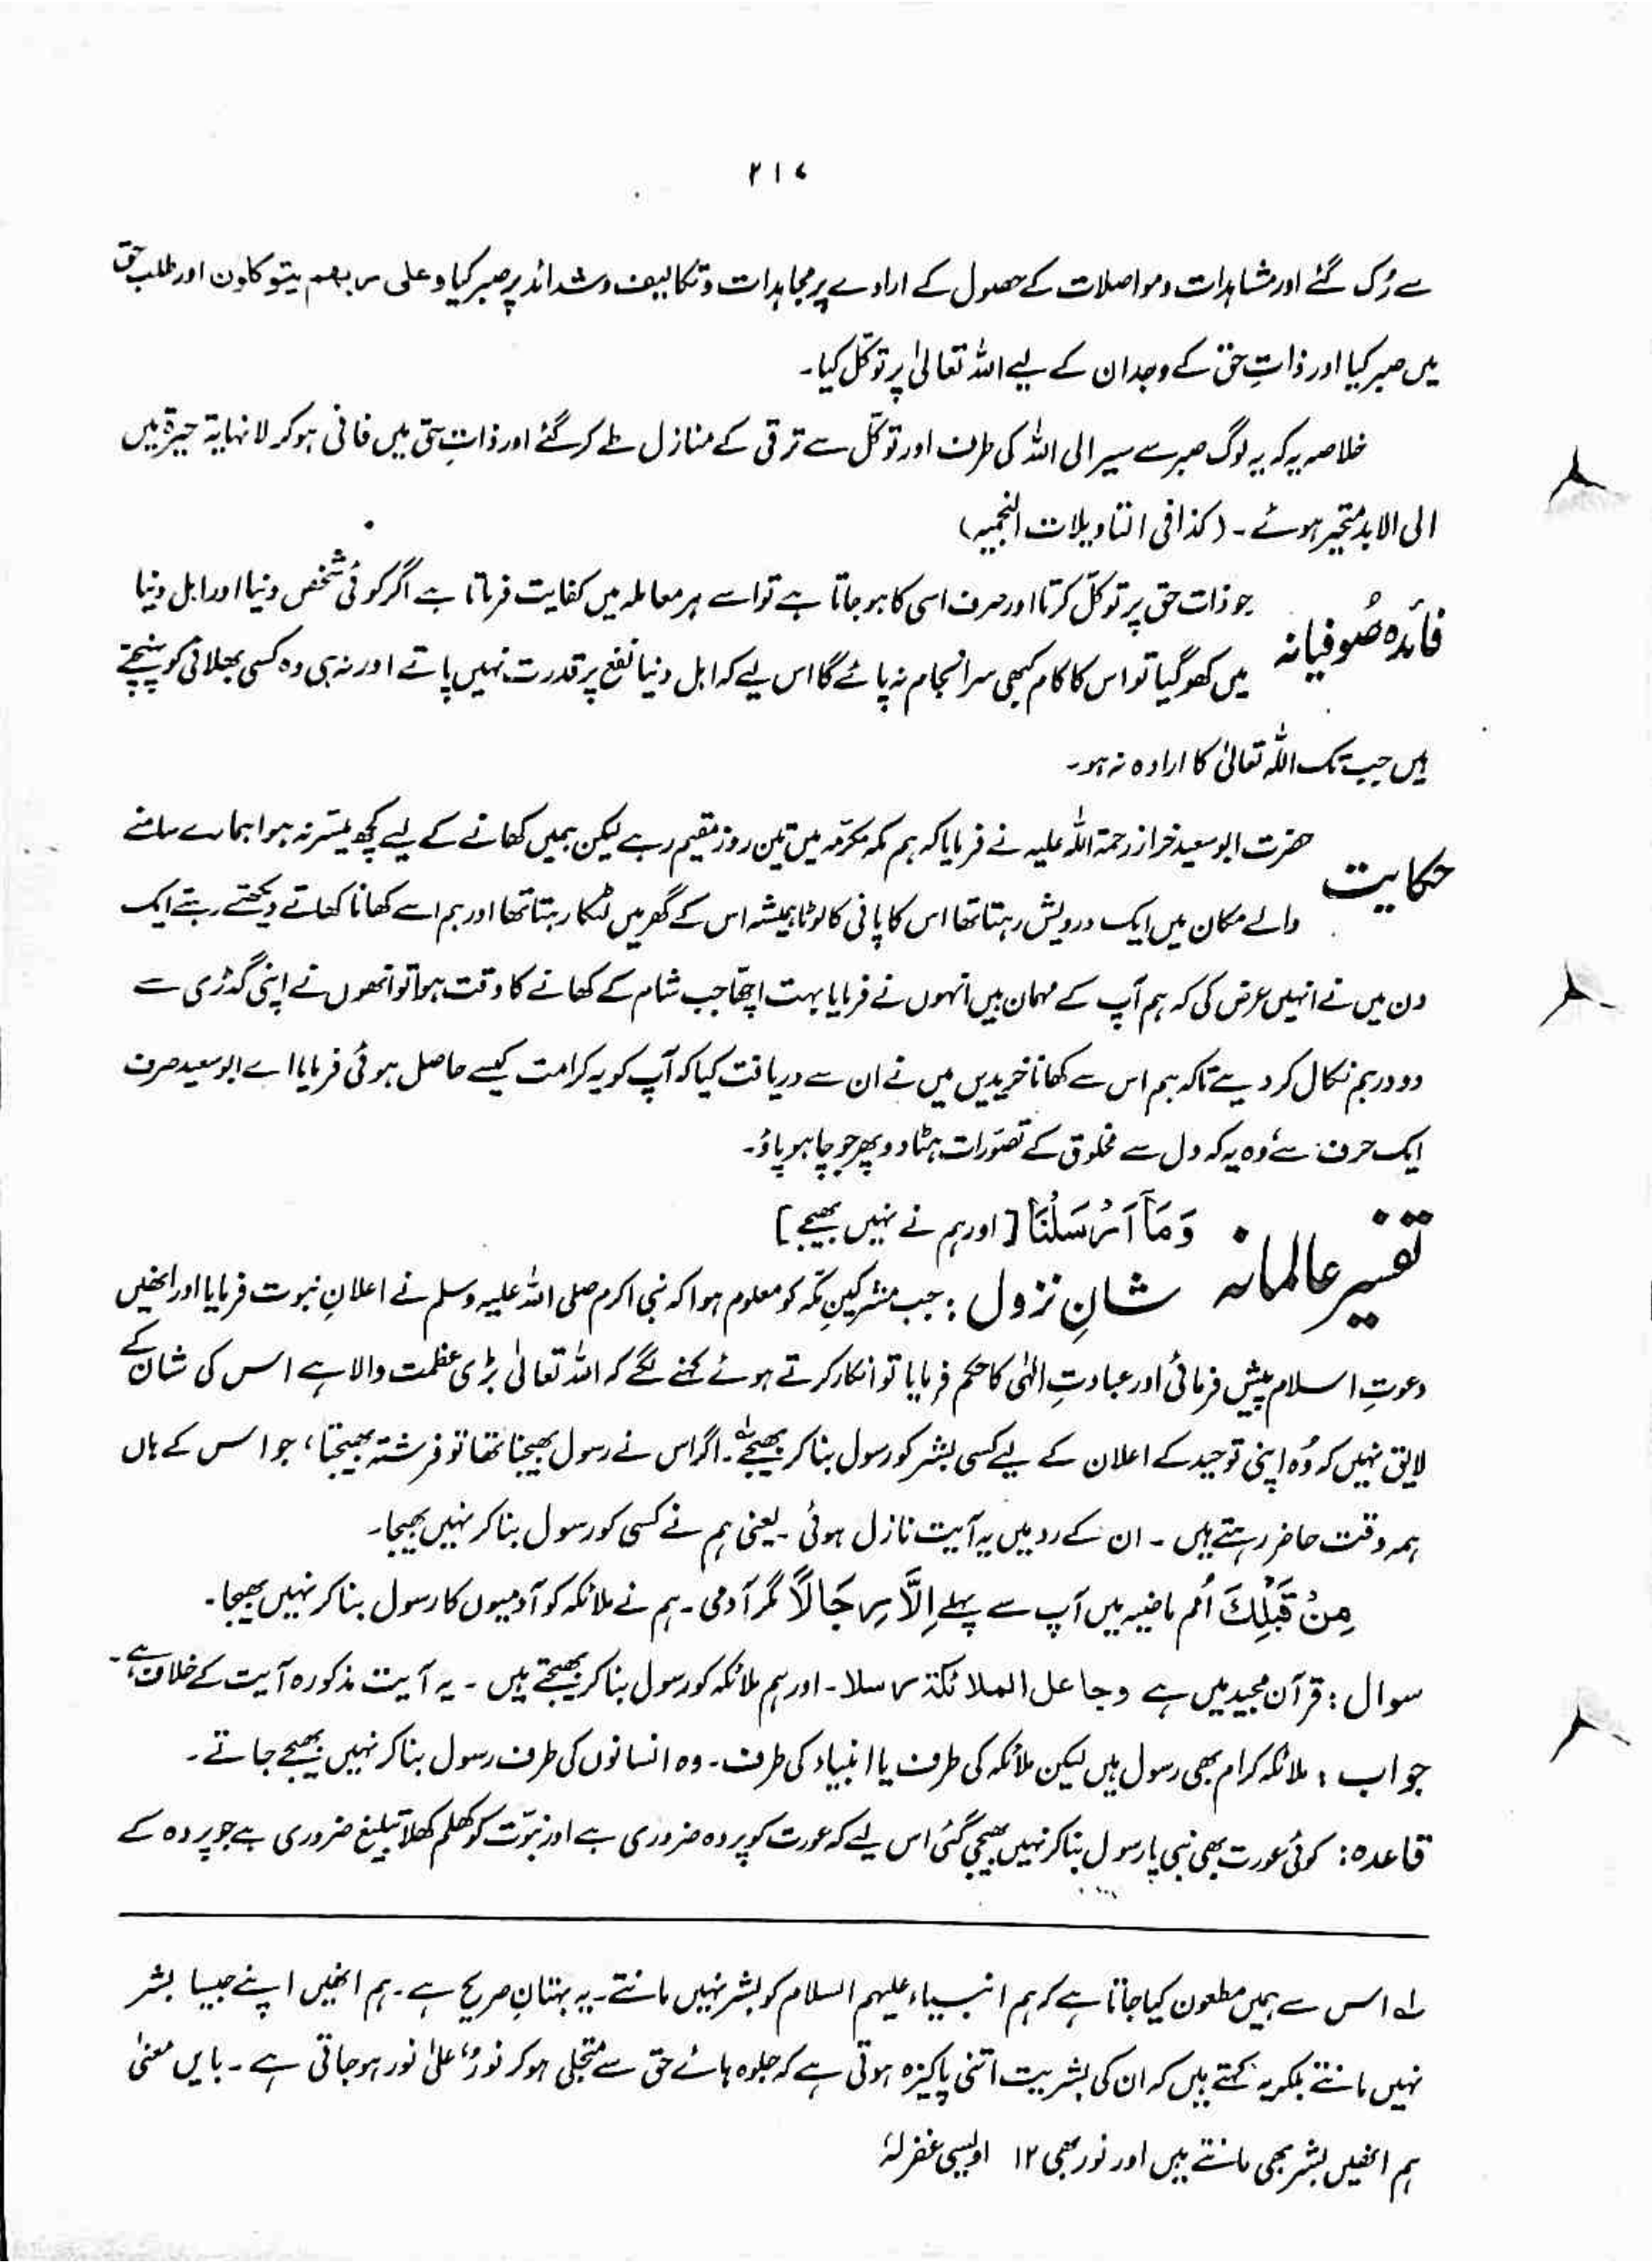 ۲۱۷
سے رُک گئے اور مشاہدات و مواصلات کے حصول کے ارادے پر مجاہدات و تکالیف و شدائد پر صبر کیا وعلی ربھم یتوکلون اور طلب حق
میں صبر کیا اور ذاتِ حق کے وجدان کے لیے اللہ تعالیٰ پر توکّل کیا۔
خلاصہ یہ کہ یہ لوگ صبر سے سیر الی اللہ کی طرف اور توکّل سے ترقی کے منازل طے کر گئے اور ذاتِ حق میں فانی ہو کر لا نہایۃ حیرۃ میں
الی الابد متحیر ہوئے۔ (کذا فی التاویلات النجمیہ)
فائدہ صُوفیانہ جو ذات حق پر توکّل کرتا اور صرف اسی کا ہو جاتا ہے تو اسے ہر معاملہ میں کفایت فرماتا ہے اگر کوئی شخص دنیا اور اہل دنیا
میں کھو گیا تو اس کا کام کبھی سر انجام نہ پائے گا اس لیے کہ اہل دنیا نفع پر قدرت نہیں پاتے اور نہ ہی وہ کسی بھلائی کو پہنچتے
ہیں جب تک اللہ تعالیٰ کا ارادہ نہ ہو۔
حکایت حضرت ابو سعید خراز رحمۃ اللہ علیہ نے فرمایا کہ ہم مکہ مکرّمہ میں تین روز مقیم رہے لیکن ہمیں کھانے کے لیے کچھ میسّر نہ ہوا ہمارے سامنے
والے مکان میں ایک درویش رہتا تھا اس کا پانی کا لوٹا ہمیشہ اس کے گھر میں لٹکا رہتا تھا اور ہم اسے کھانا کھاتے دیکھتے رہتے ایک
دن میں نے انہیں عرض کی کہ ہم آپ کے مہمان ہیں انہوں نے فرمایا بہت اچّھا جب شام کے کھانے کا وقت ہوا تو انھوں نے اپنی گدڑی سے
دو درہم نکال کر دیے تاکہ ہم اس سے کھانا خریدیں میں نے ان سے دریافت کیا کہ آپ کو یہ کرامت کیسے حاصل ہوئی فرمایا اے ابو سعید صرف
ایک حرف سے وہ یہ کہ دل سے مخلوق کے تصوّرات ہٹا دو پھر جو چاہو پاؤ۔
تفسیر عالمانہ وَمَآ اَرْسَلْنَا [اور ہم نے نہیں بھیجے]
شانِ نزول : جب مشرکینِ مکّہ کو معلوم ہوا کہ نبی اکرم صلی اللہ علیہ وسلم نے اعلانِ نبوت فرمایا اور انھیں
دعوتِ اسلام پیش فرمائی اور عبادتِ الٰہی کا حکم فرمایا تو انکار کرتے ہوئے کہنے لگے کہ اللہ تعالیٰ بڑی عظمت والا ہے اس کی شان کے
لایق نہیں کہ وُہ اپنی توحید کے اعلان کے لیے کسی بشر کو رسول بنا کر بھیجے۔ اگر اس نے رسول بھیجنا تھا تو فرشتہ بھیجتا، جو اس کے ہاں
ہمہ وقت حاضر رہتے ہیں ۔ ان کے رد میں یہ آیت نازل ہوئی ۔ یعنی ہم نے کسی کو رسول بنا کر نہیں بھیجا۔
مِنْ قَبْلِكَ اُمم ماضیہ میں آپ سے پہلے اِلَّا رِجَالًا مگر آدمی ۔ ہم نے ملائکہ کو آدمیوں کا رسول بنا کر نہیں بھیجا۔
سوال : قرآن مجید میں ہے وجاعل الملائکۃ رسلا ۔ اور ہم ملائکہ کو رسول بنا کر بھیجتے ہیں ۔ یہ آیت مذکورہ آیت کے خلاف ہے۔
جواب : ملائکہ کرام بھی رسول ہیں لیکن ملائکہ کی طرف یا انبیاء کی طرف ۔ وہ انسانوں کی طرف رسول بنا کر نہیں بھیجے جاتے ۔
قاعدہ : کوئی عورت بھی نبی یا رسول بنا کر نہیں بھیجی گئی اس لیے کہ عورت کو پردہ ضروری ہے اور نبوّت کو کھلم کھلا تبلیغ ضروری ہے جو پردہ کے
لہ اس سے ہمیں مطعون کیا جاتا ہے کہ ہم انبیاء علیہم السلام کو بشر نہیں مانتے ۔ یہ بہتانِ صریح ہے ۔ ہم انھیں اپنے جیسا بشر
نہیں مانتے بلکہ یہ کہتے ہیں کہ ان کی بشریت اتنی پاکیزہ ہوتی ہے کہ جلوہ ہائے حق سے متجلی ہو کر نورٌ علیٰ نور ہو جاتی ہے ۔ بایں معنیٰ
ہم انھیں بشر بھی مانتے ہیں اور نور بھی ۱۲ اویسی غفرلہٗ